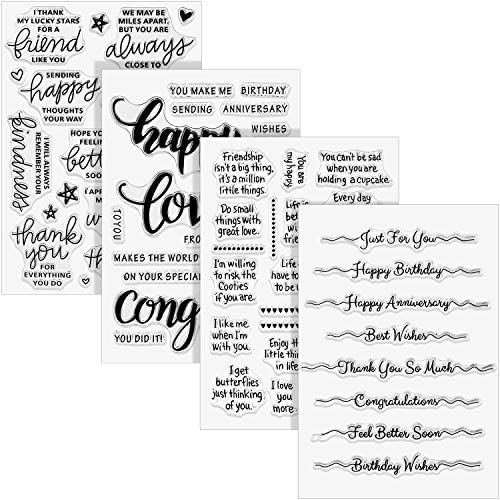 I THANK
MY LUCKY STARS
FOR A
friend
LIKE YOU
WE MAY BE
MILES APART,
BUT YOU ARE
always
CLOSE TO
SENDING
happy
THOUGHTS
YOUR WAY
kindness
I WILL ALWAYS
REMEMBER YOUR
HOPE YO
FEELIN
bett
SOO
I APP
thank
you
FOR
EVERYTHING
YOU DO
YOU MAKE ME
BIRTHDAY
SENDING
ANNIVERSARY
happy
WISHES
lov
TO YOU
FRO
MAKES THE WORLD
ON YOUR SPECIAL
Cong
YOU DID IT!
Friendship
isn't a big thing,
it's a million
little things.
You are
my happy
You can't be sad
when you are
holding a cupcake.
Do small
things with
great love.
Life is
be
wi
frie
Every day
I'm willing
to risk the
Cooties
if you are.
Life
have
to be
I like me
when I'm
with you.
Enjoy th
little thin
in life
I get
butterflies
just thinking
of you.
I love
you
more..
Just For You
Happy Birthday
Happy Anniversary
Best Wishes
Thank You So Much
Congratulations
Feel Better Soon
Birthday Wishes